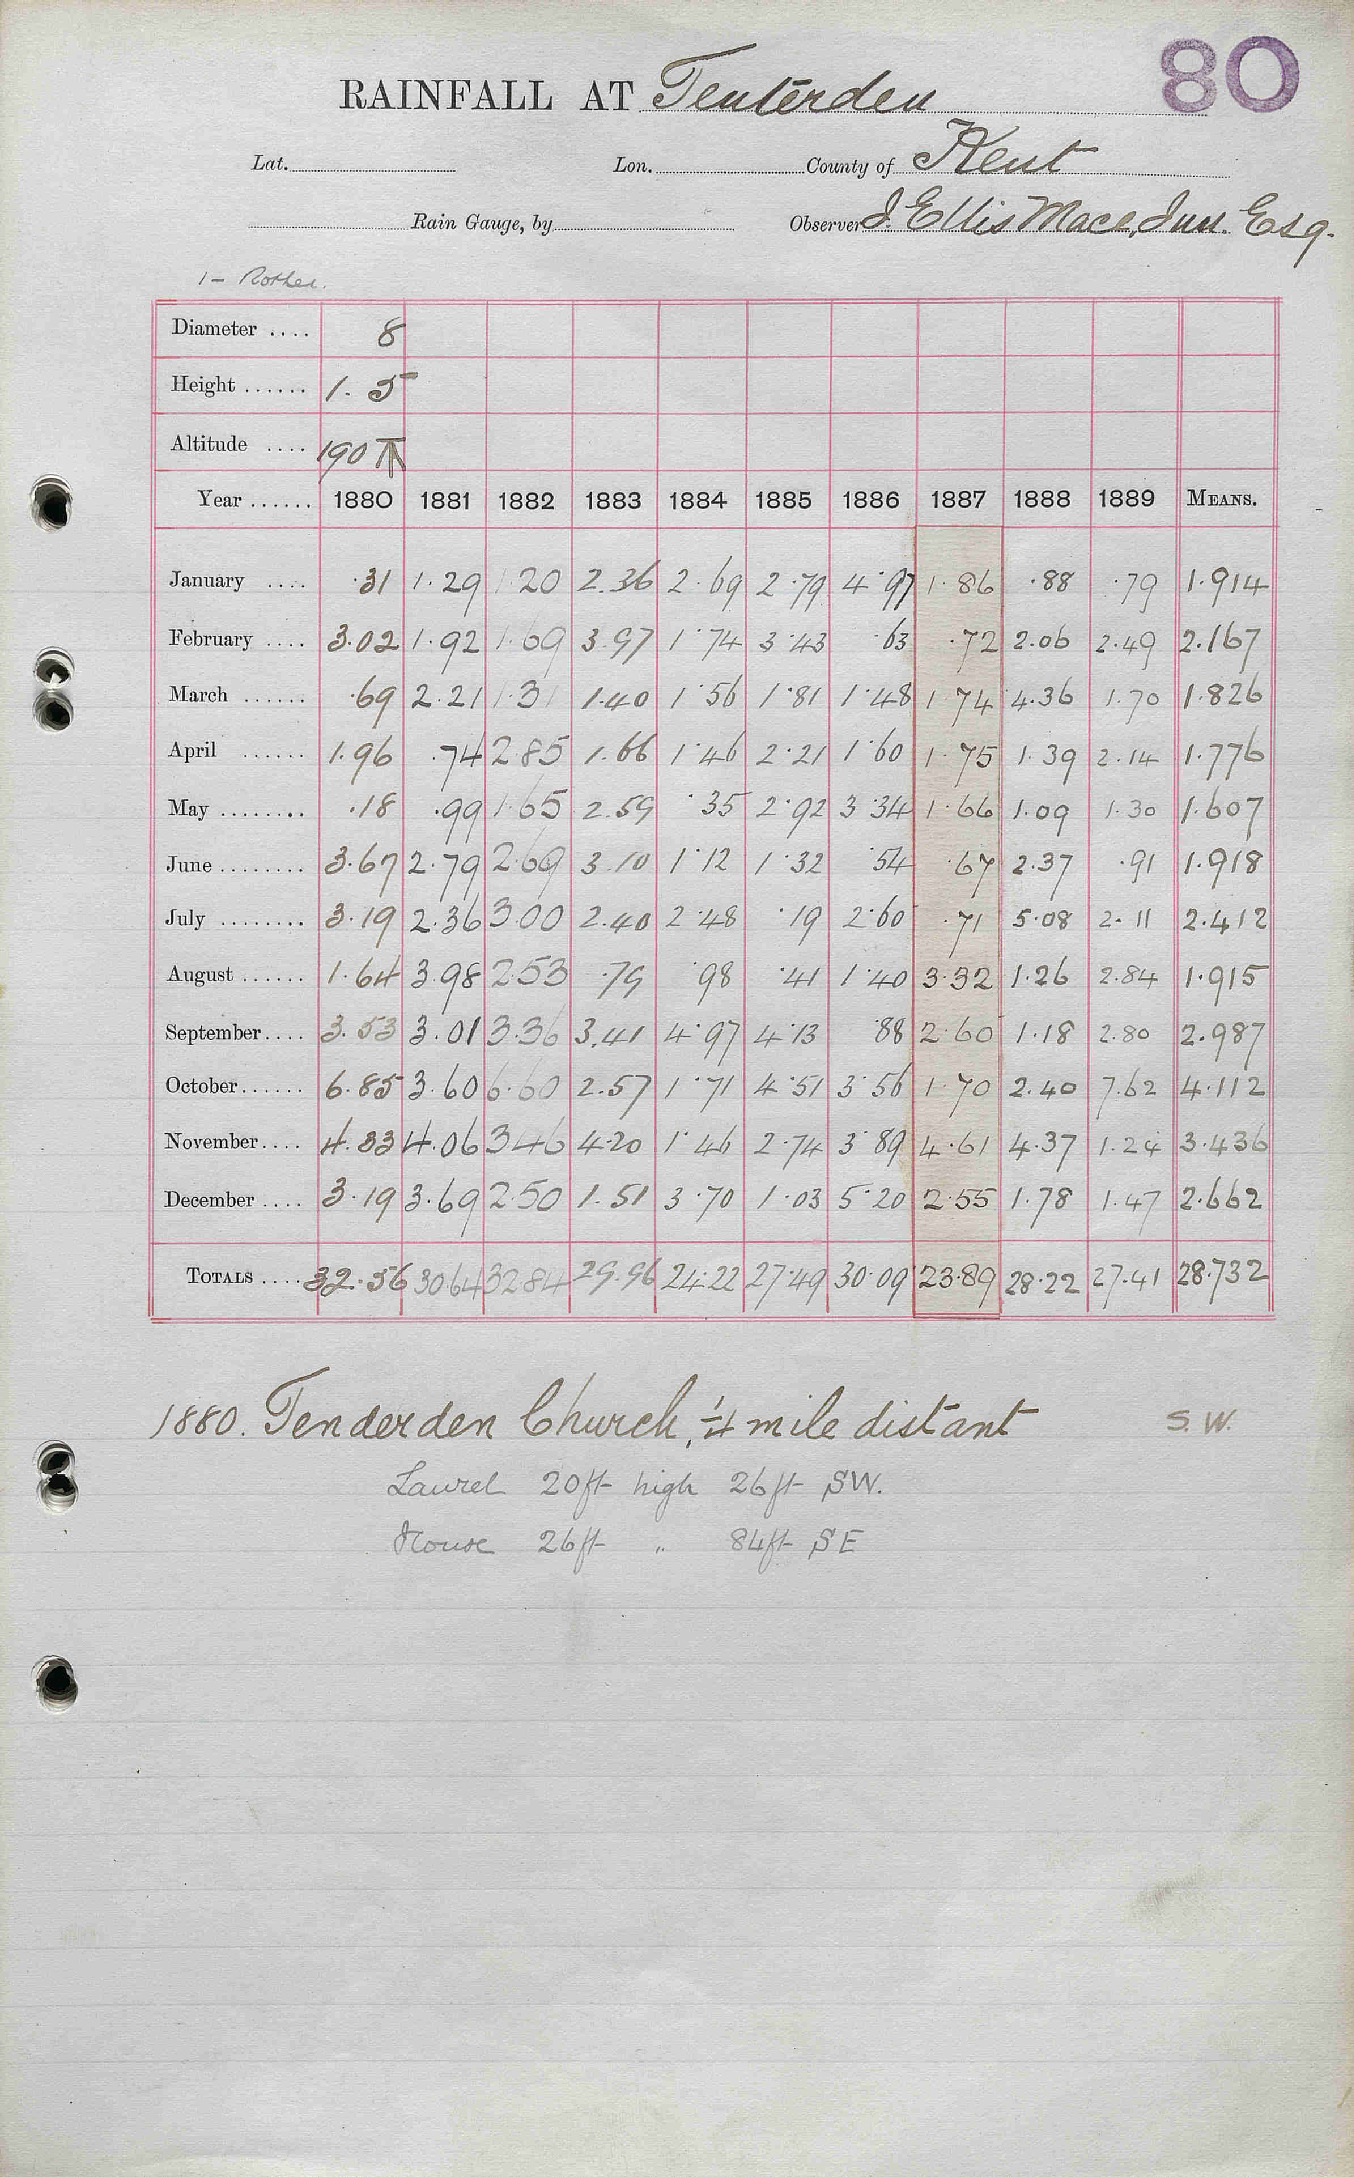 80
RAINFALL AT Tenterden
Lat. Lon. County of Kent
Rain Gauge, by Observer J. Ellis Mace, Jun. Esq.
1 - Rother.
Diameter .... 8
Height ...... 1. 5
Altitude .... 190
Year ...... 1880 1881 1882 1883 1884 1885 1886 1887 1888 1889 MEANS.
January .... .31 1.29 1.20 2.36 2.69 2.79 4.97 1.86 .88 .79 1.914
February .... 3.02 1.92 1.69 3.97 1.74 3.43 .63 .72 2.06 2.49 2.167
March ...... .69 2.21 1.31 1.40 1.56 1.81 1.48 1.74 4.36 1.70 1.826
April ...... 1.96 .74 2.85 1.66 1.46 2.21 1.60 1.75 1.39 2.14 1.776
May ........ .18 .99 1.65 2.59 .35 2.92 3.34 1.66 1.09 1.30 1.607
June ........ 3.67 2.79 2.69 3.10 1.12 1.32 .54 .67 2.37 .91 1.918
July ........ 3.19 2.36 3.00 2.40 2.48 .19 2.60 .71 5.08 2.11 2.412
August ...... 1.64 3.98 2.53 .79 .98 .41 1.40 3.32 1.26 2.84 1.915
September .... 3.53 3.01 3.36 3.41 4.97 4.13 .88 2.60 1.18 2.80 2.987
October ...... 6.85 3.60 6.60 2.57 1.71 4.51 3.56 1.70 2.40 7.62 4.112
November .... 4.33 4.06 3.46 4.20 1.46 2.74 3.89 4.61 4.37 1.24 3.436
December .... 3.19 3.69 2.50 1.51 3.70 1.03 5.20 2.55 1.78 1.47 2.662
TOTALS .... 32.56 30.64 32.84 29.96 24.22 27.49 30.09 23.89 28.22 27.41 28.732
1880. Tenderden Church, 1/4 mile distant S.W.
Laurel 20ft high 26ft SW.
House 26ft " 84ft SE